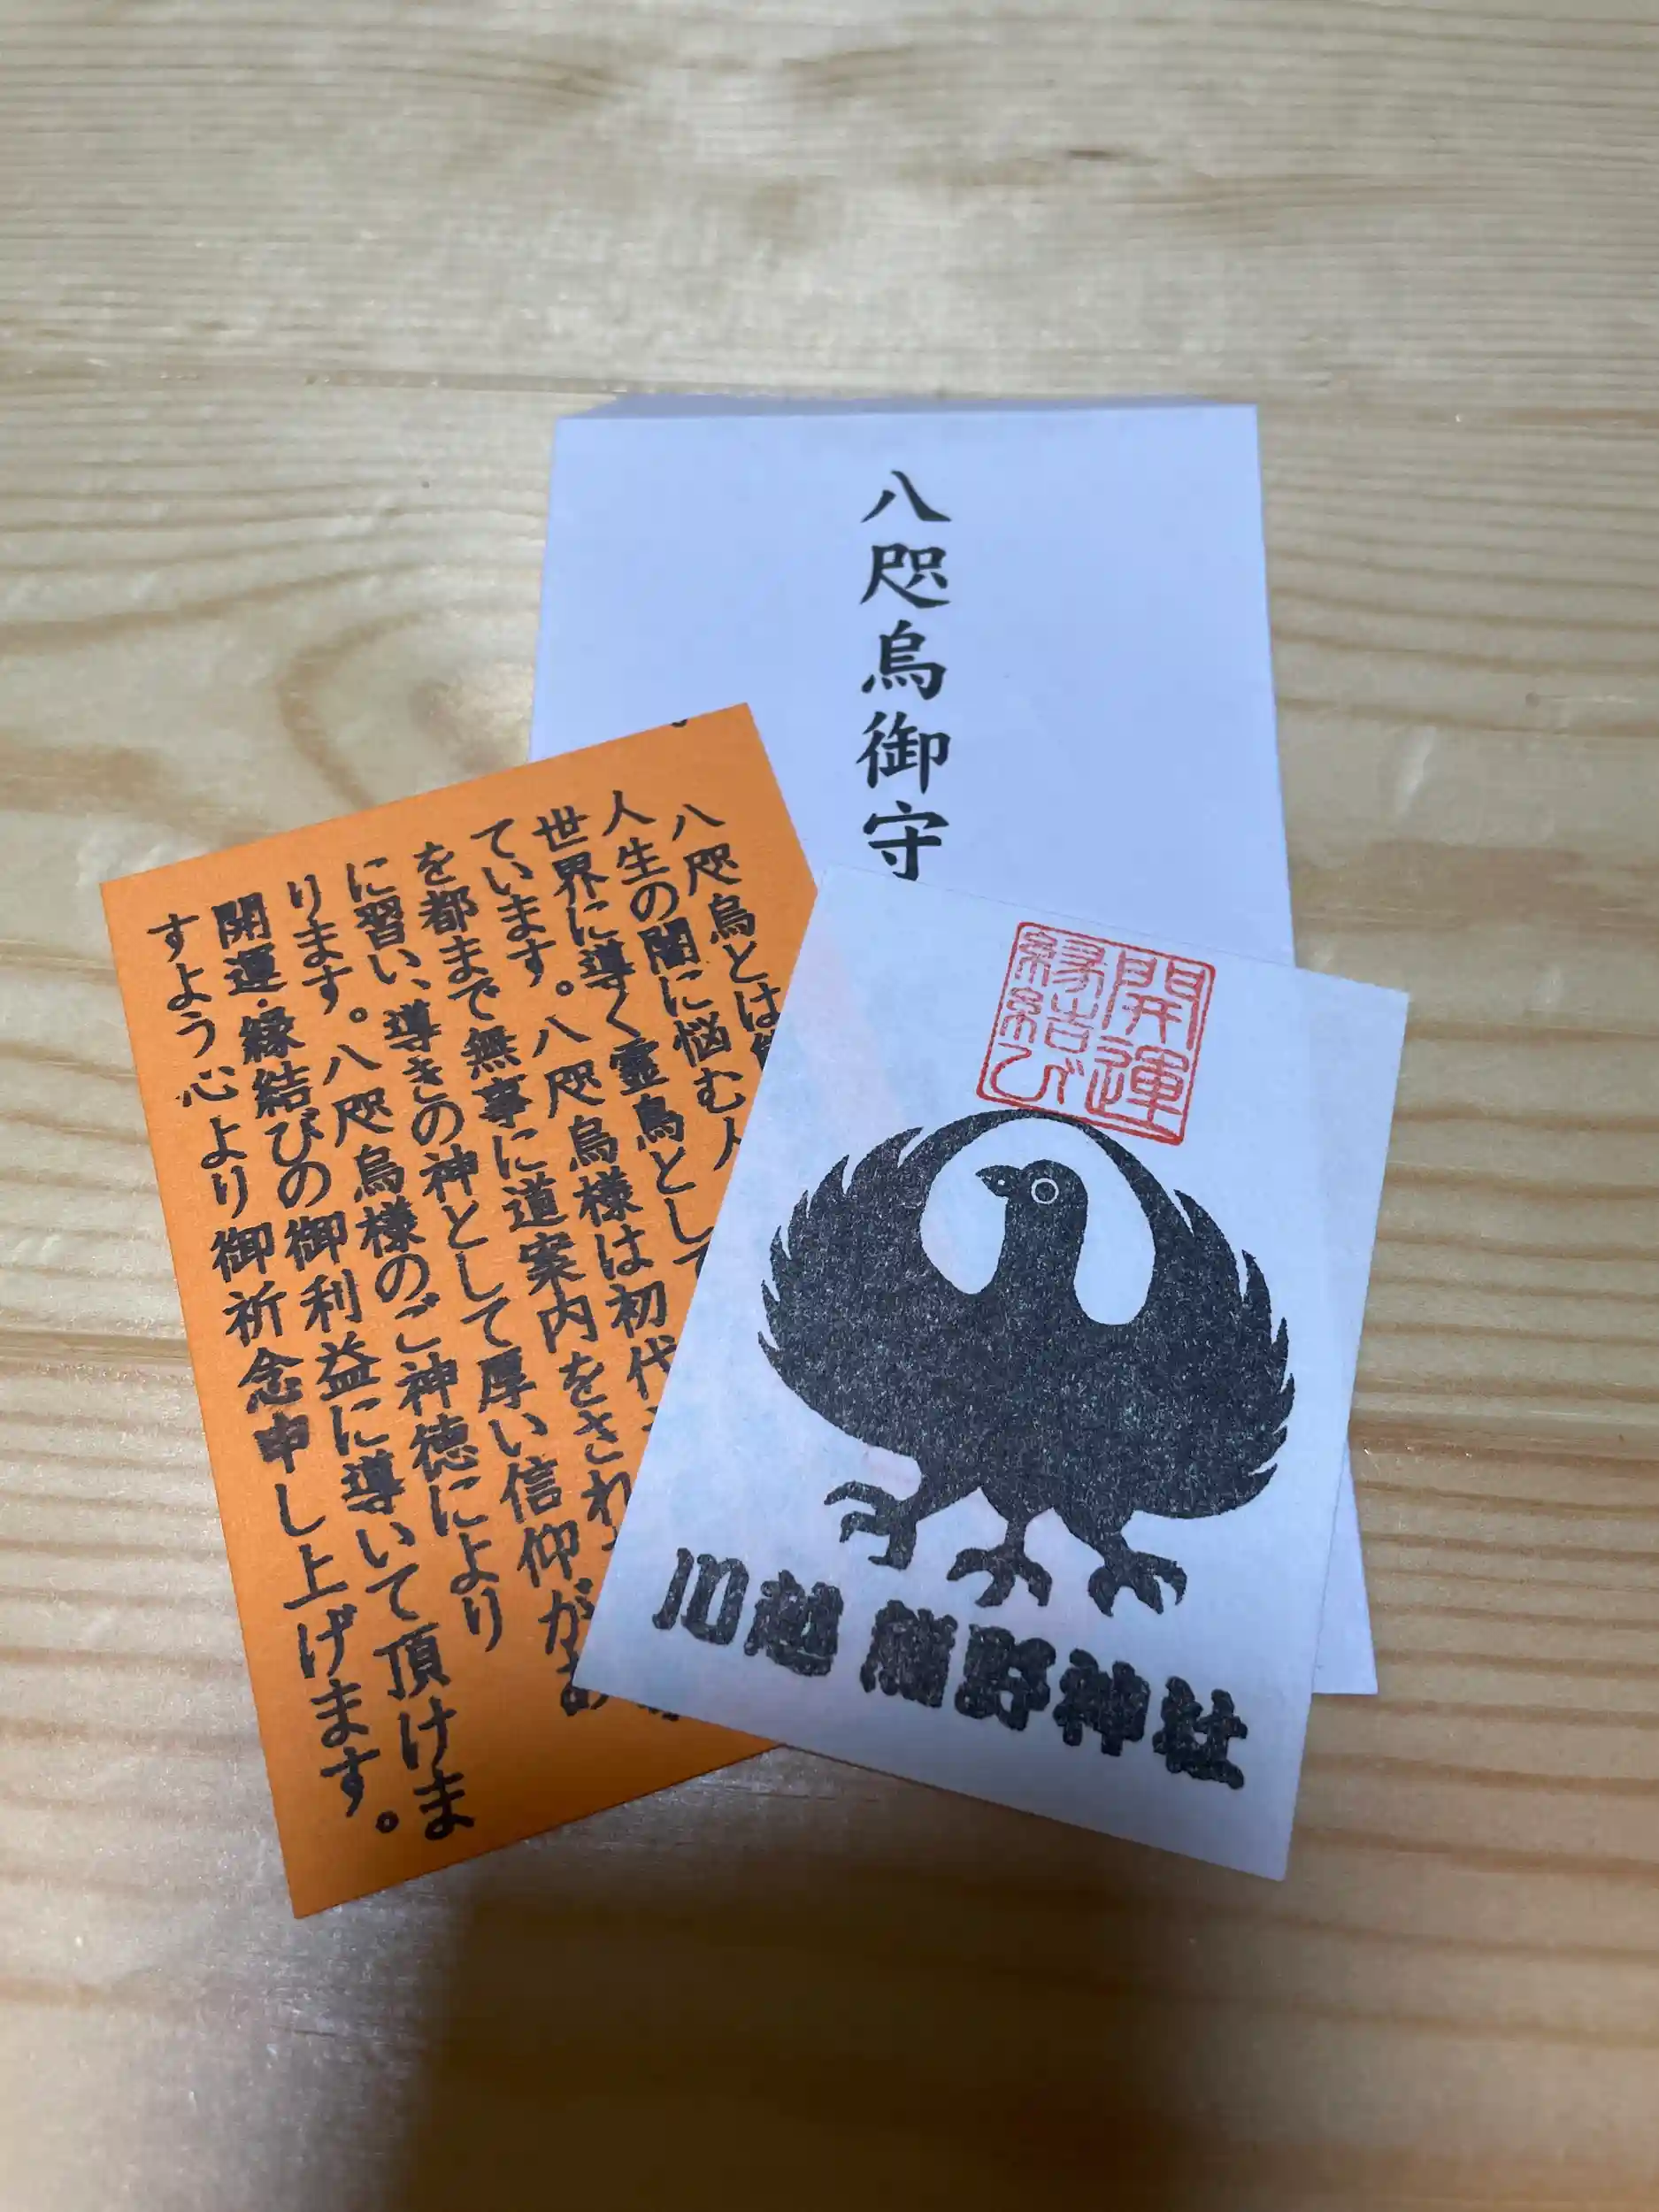 八咫烏御守
開運
縁結び
川越 熊野神社
八咫烏とは
人生の闇に悩む人
世界に導く霊鳥として
ています。八咫烏様は初代
を都まで無事に道案内をされ
に習い、導きの神として厚い信仰があ
ります。八咫烏様のご神徳により
開運・縁結びの御利益に導いて頂けま
すよう心より御祈念申し上げます。